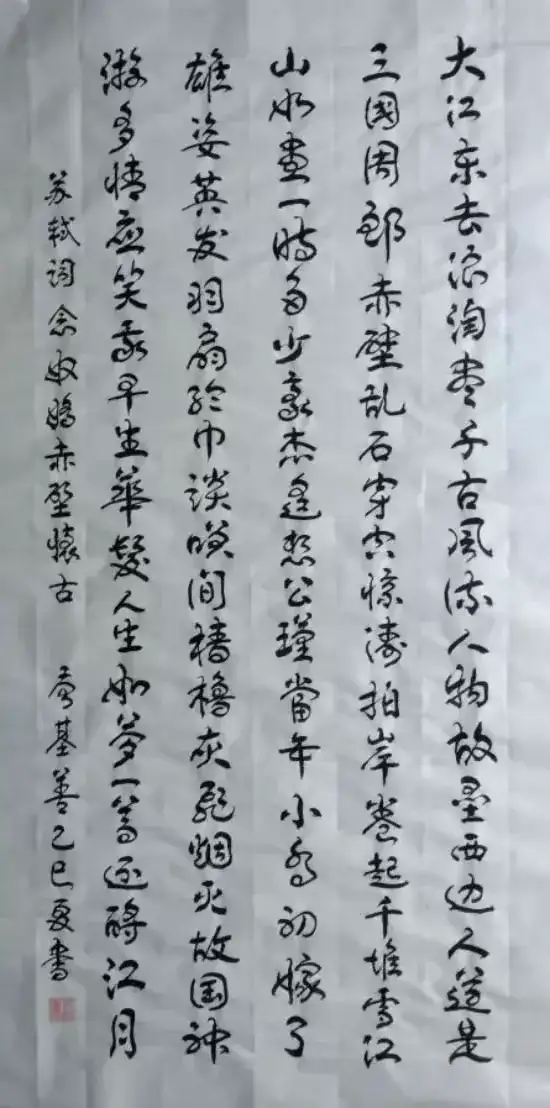 大江东去浪淘尽千古風流人物故垒西边人道是
三國周郎赤壁乱石穿空惊涛拍岸卷起千堆雪江
山如画一時多少豪杰遥想公瑾當年小乔初嫁了
雄姿英发羽扇纶巾談笑间檣櫓灰飛烟灭故国神
游多情应笑我早生華髮人生如梦一尊还酹江月
苏轼词念奴娇赤壁懷古 基善乙巳夏书